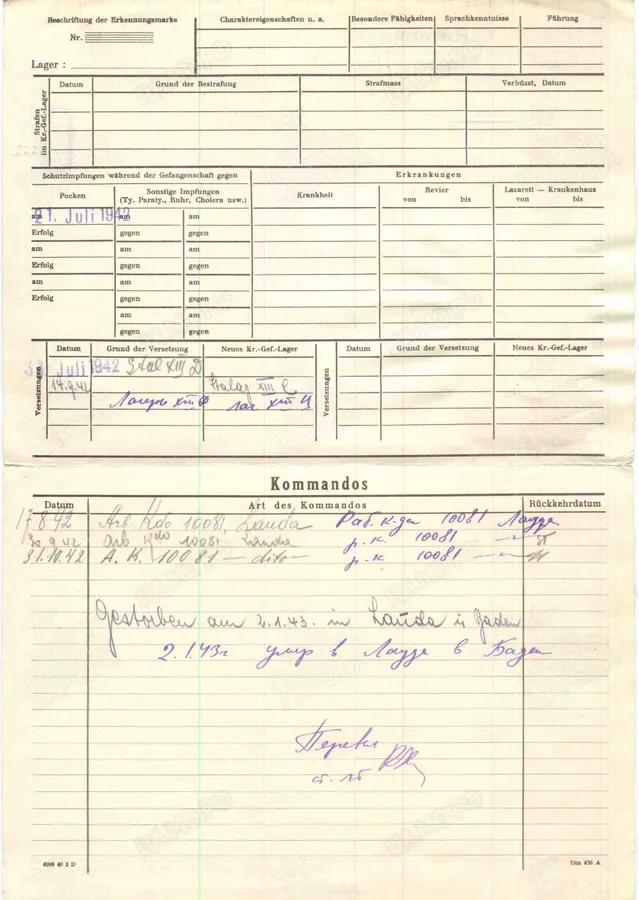 Beschriftung der Erkennungsmarke
Nr.
Lager :
Charaktereigenschaften u. a.
Besondere Fähigkeiten
Sprachkenntnisse
Führung
Strafen im Kr.-Gef.-Lager
Datum
Grund der Bestrafung
Strafmass
Verbüsst, Datum
Schutzimpfungen während der Gefangenschaft gegen
Erkrankungen
Pocken
Sonstige Impfungen
(Ty. Paraty., Ruhr, Cholera usw.)
Krankheit
Revier
von bis
Lazarett — Krankenhaus
von bis
am 21. Juli 1942 am am
Erfolg gegen gegen
am am am
Erfolg gegen gegen
am am am
Erfolg gegen gegen
am am
gegen gegen
Versetzungen
Datum
Grund der Versetzung
Neues Kr.-Gef.-Lager
Versetzungen
Datum
Grund der Versetzung
Neues Kr.-Gef.-Lager
Juli 1942 Stal XIII D
14.9.42 Stalag XIII C
XIII Ф лаг XIII Ц
Kommandos
Datum
Art des Kommandos
Rückkehrdatum
17.8.42 Arb. Kdo 10081, Lauda Раб. к-да 10081 Лауда
30.9.42 Arb Kdo 10081 Lauda р. к. 10081 — " —
31.10.42 A. K. 10081 — dito — р. к 10081 — " —
Gestorben am 2.1.43. in Lauda i/ Baden
2.1.43г умер в Лауде в Баден
Перевел
ст. лт
4999 40 2 D
Din 476 A